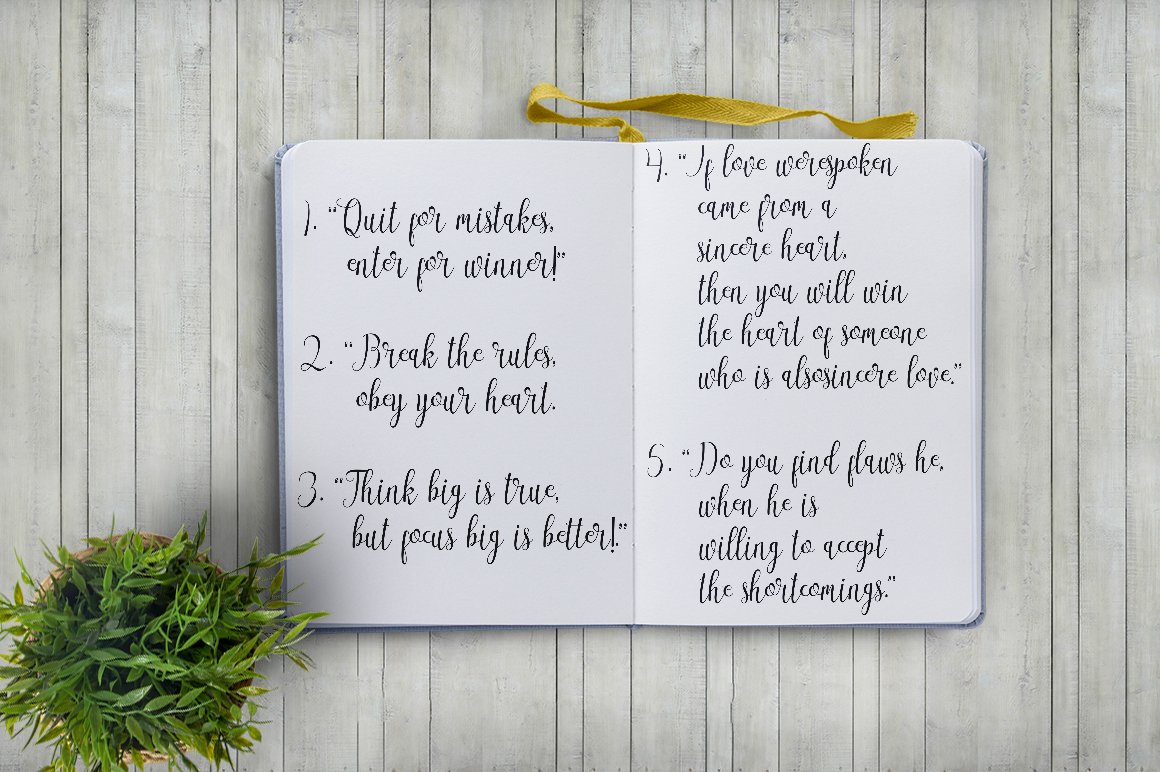 1. "Quit for mistakes,
enter for winner!"
2. "Break the rules,
obey your heart.
3. "Think big is true,
but focus big is better!."
4. "If love werespoken
came from a
sincere heart,
then you will win
the heart of someone
who is alsosincere love."
5. "Do you find flaws he,
when he is
willing to accept
the shortcomings."